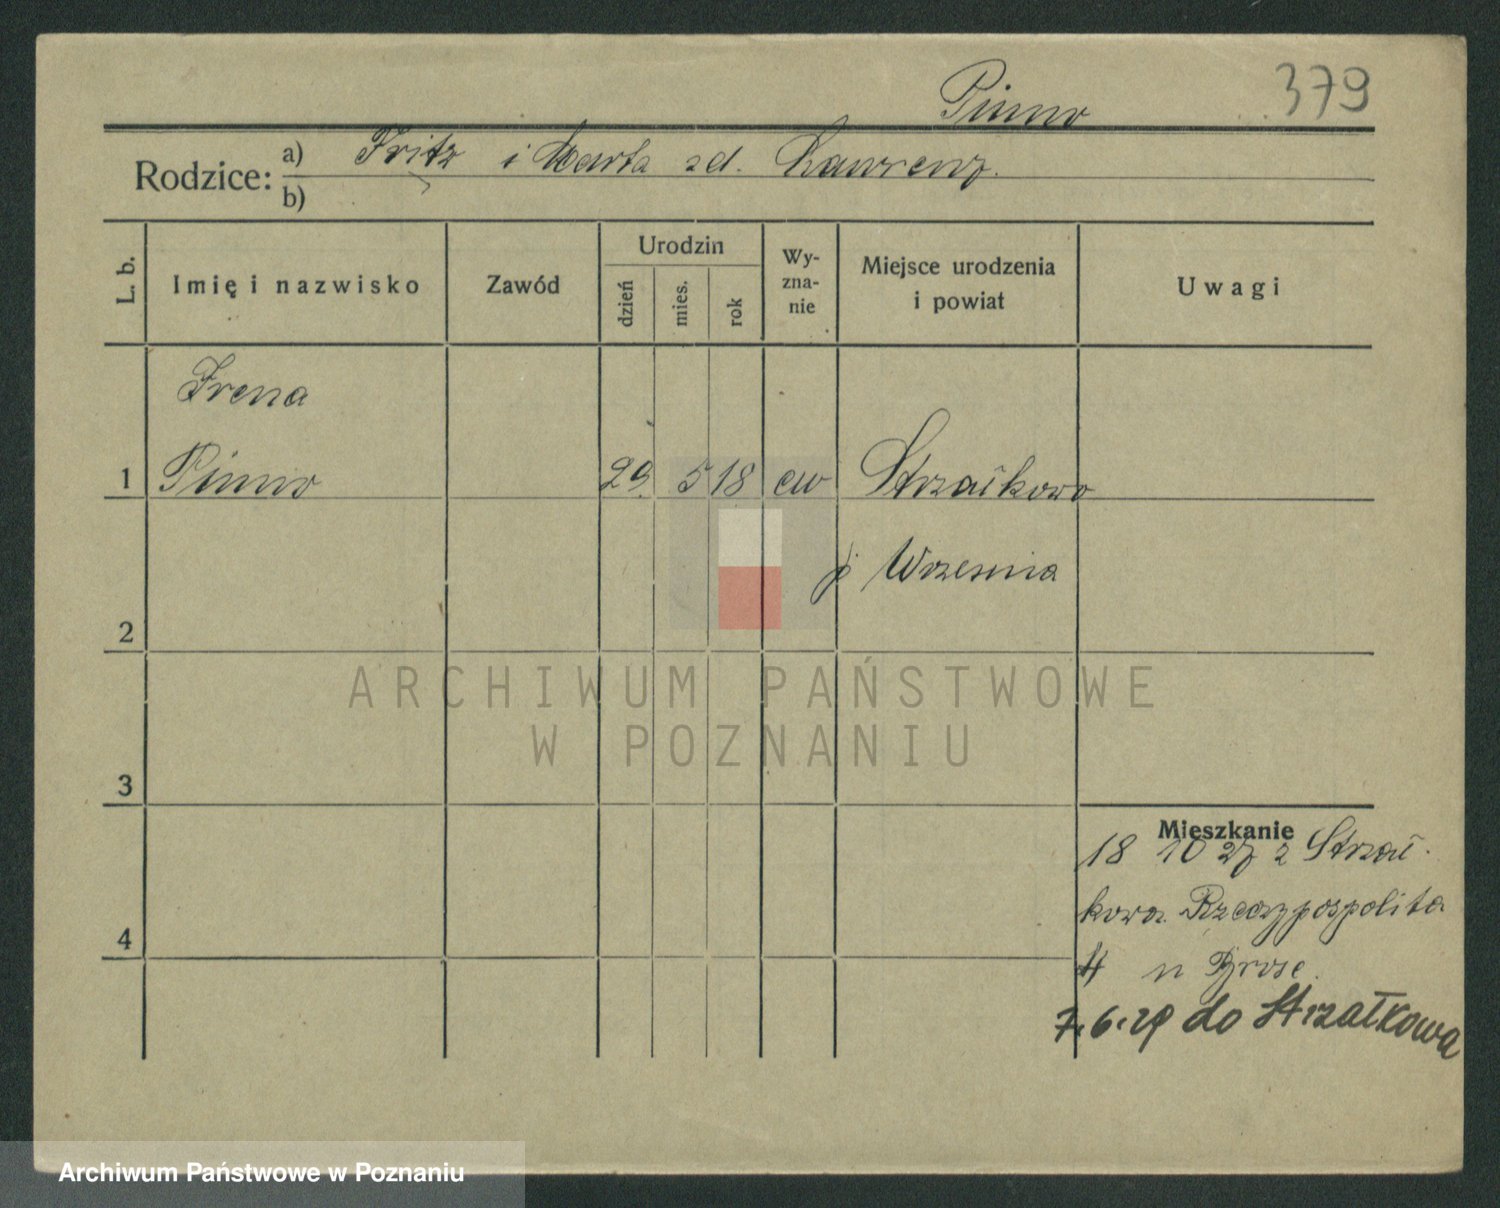 Pinno
379
Rodzice:
a) Fritz i Marta zd. Laurenz.
b)
L. b.
Imię i nazwisko
Zawód
Urodzin
dzień
mies.
rok
Wy-
zna-
nie
Miejsce urodzenia
i powiat
Uwagi
Irena
1 Pinno 29. 5 18 ew Strzałkowo
p Wrzesnia
2
3
4
Mieszkanie
18 10 27 z Strzał-
kowa Rzeczypospolita
4 n Brose.
7.6.29 do Strzałkowa
ARCHIWUM PAŃSTWOWE
W POZNANIU
Archiwum Państwowe w Poznaniu